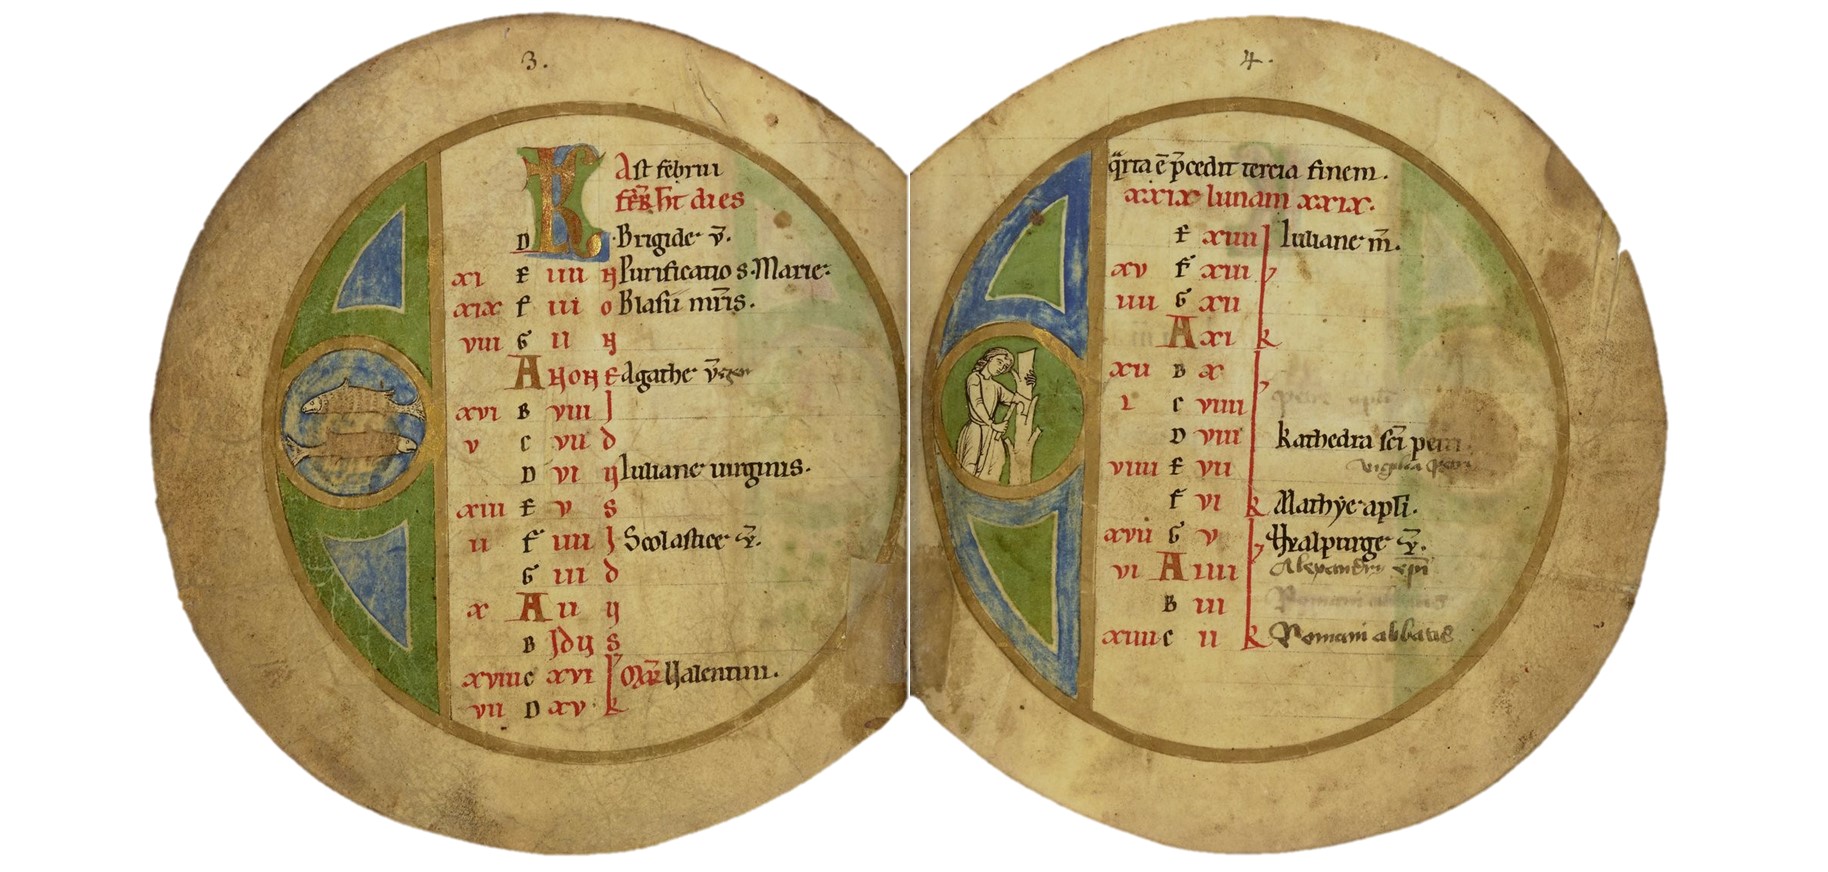 3.
KL Ast febrııı
febr̄ ht dies
D Brigide v̄.
xi E iiii N Purificatio s. Marie.
xix f iii o Blasii mr̄is.
viii G ii N
A NON E Agathe v̄
xvi B viii I
v C vii d
D vi y Iuliane uirginis.
xiii E v s
ii F iiii I Scolastice v̄.
G iii d
x A ii y
B Idy s
xviii C xvi Mar̄ Valentini.
vii D xv k
4.
q̄rta ē p̄cedit tercia finem.
xxix lunam xxix.
E xiiii Iuliane m̄.
xv F xiii
iiii G xii
A xi k
xii B x
i C viiii Petri apli
D viii kathedra sc̄i petri
viiii E vii vigilia
F vi k Mathye apl̄i.
xvii G v Walpurge v̄.
vi A iiii Alexandri ep̄i
B iii Romani abbatis
xiiii C ii k Romani abbatis